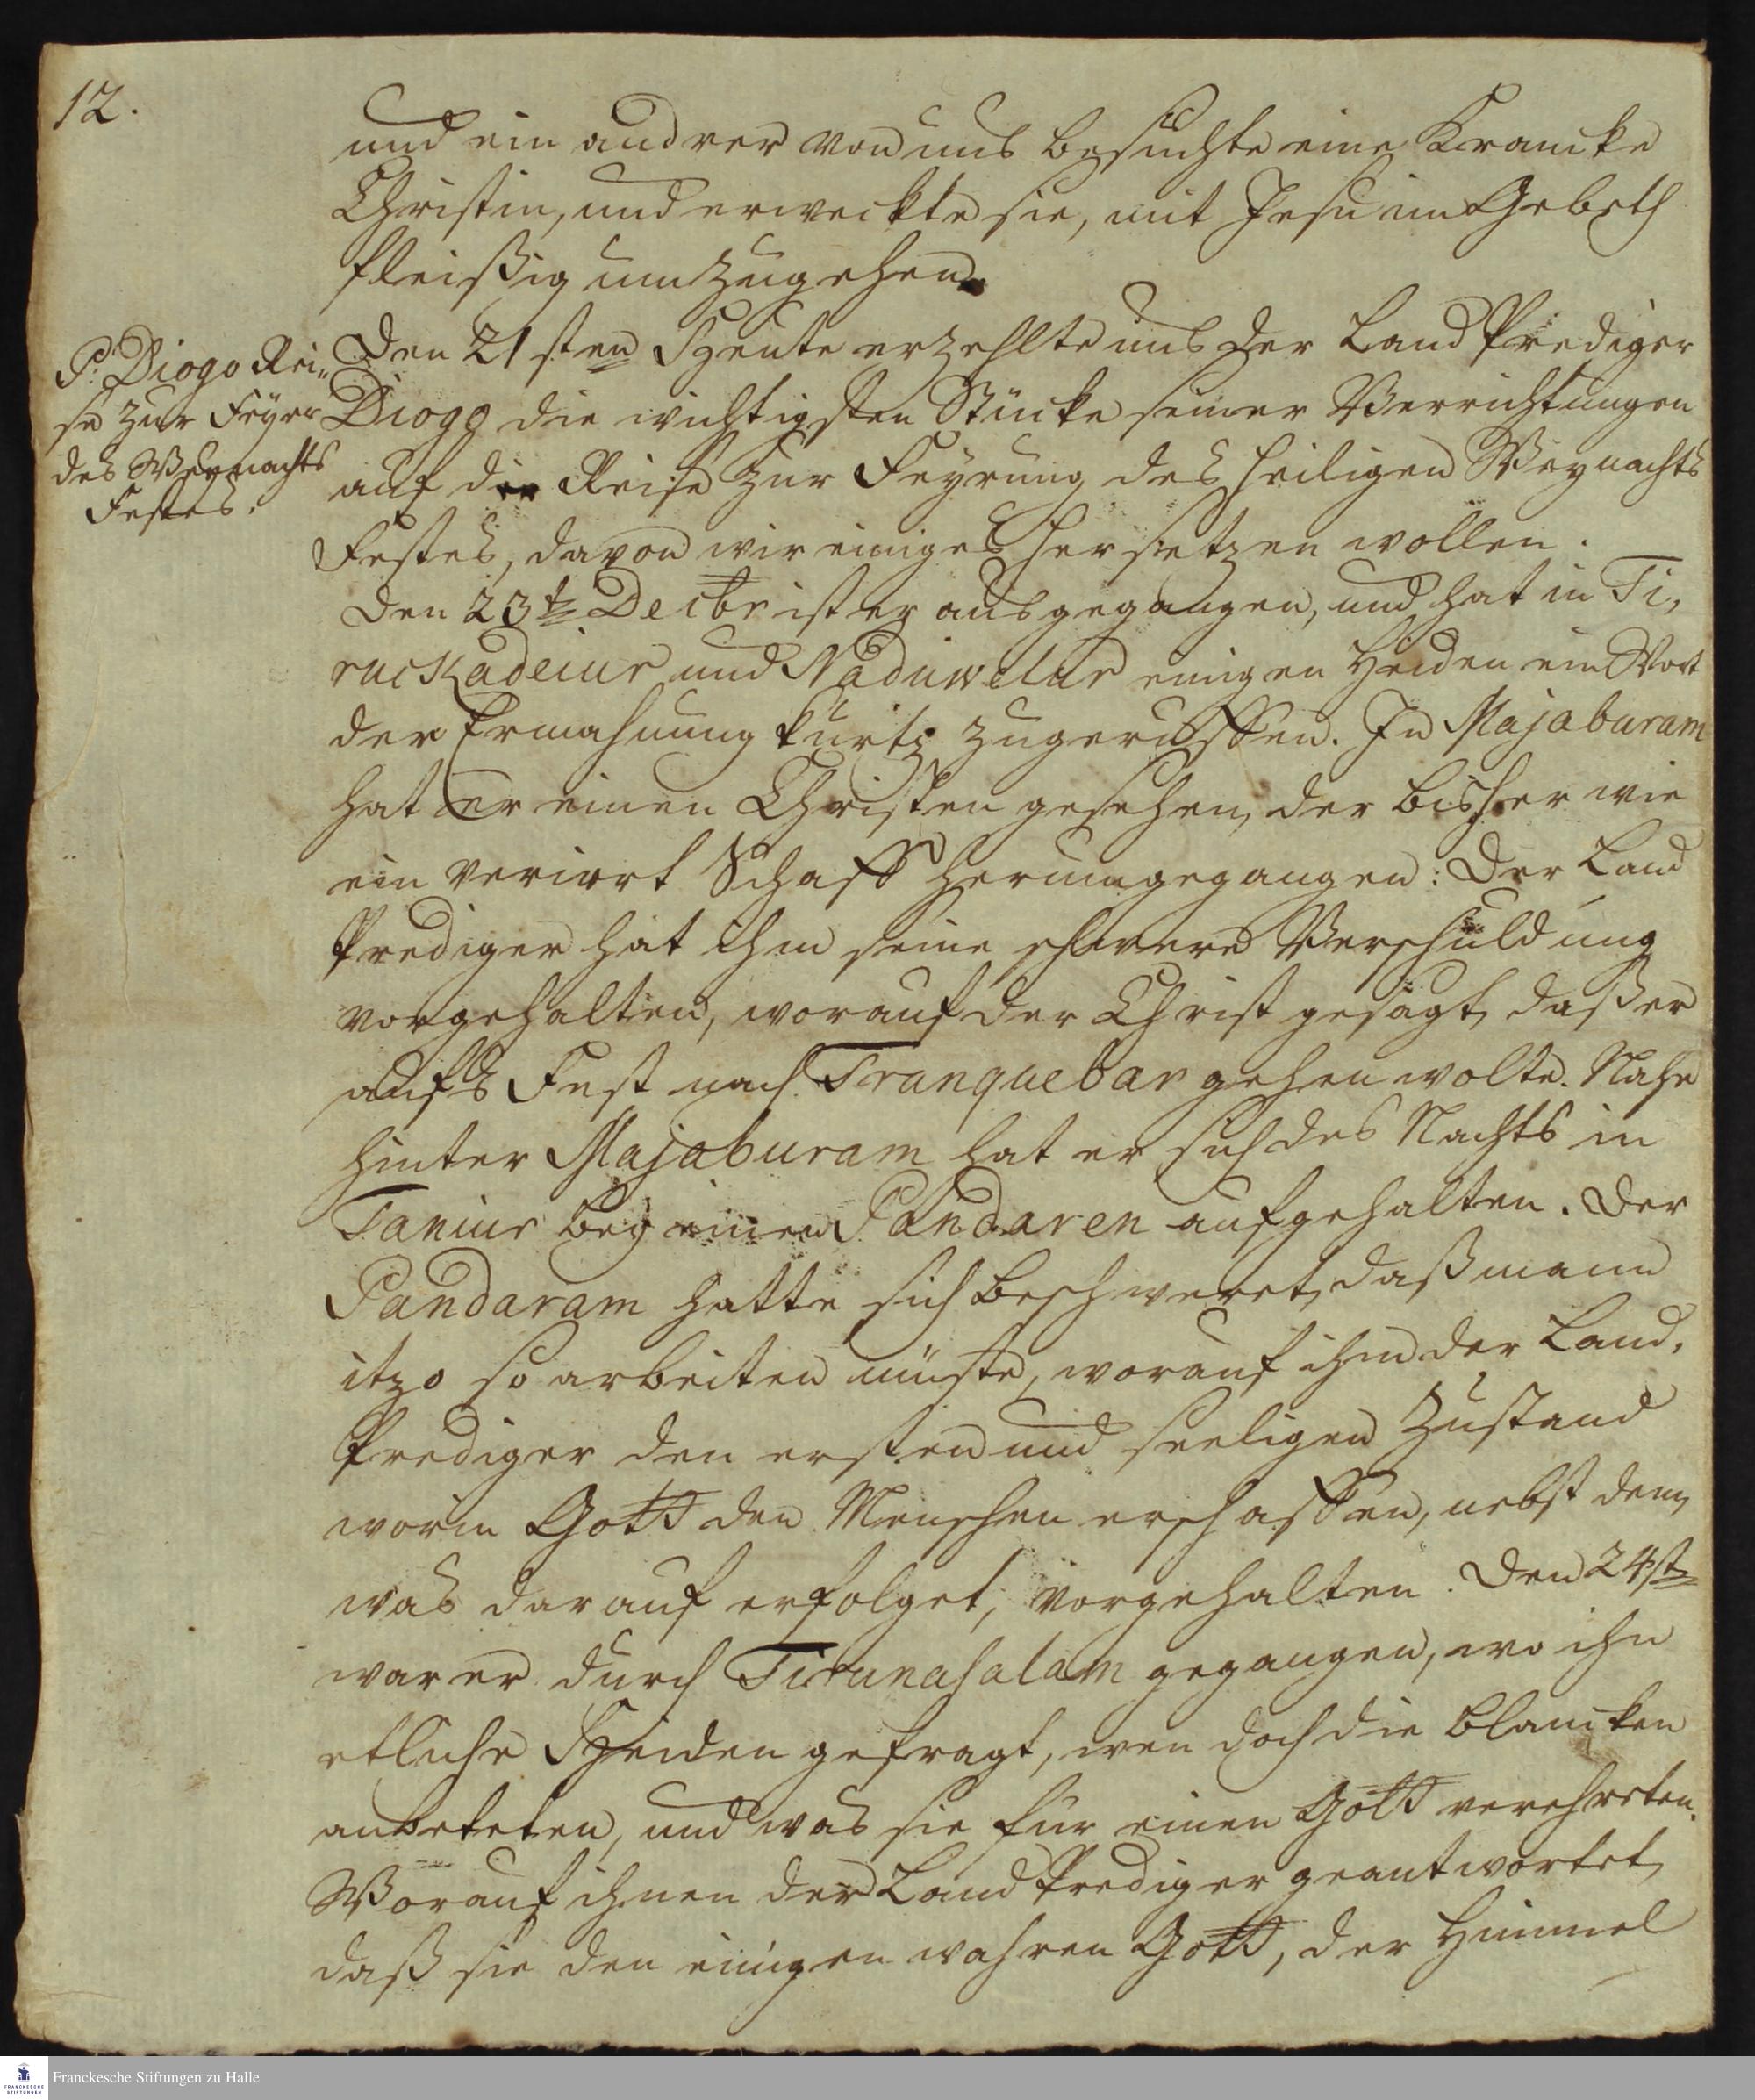 12.
und ein andrer von uns besuchte eine Krancke
Christin, und erweckte sie, mit Jesu im Gebeth
fleißig umzugehen.
P. Diogo Rei„
se zur Feyer
des Weynachts
Festes.
Den 21sten Heute erzehlte uns der Land Prediger
Diogo die wichtigsten Stücke seiner Verrichtungen
auf der Reise zur Feyrung des heiligen Weynachts
Festes, davon wir einiges hersetzen wollen.
Den 23t Decbr ist er ausgegangen, und hat in Ti,
ruckadeiur und Naduwelur einigen Heiden ein Wort
der Ermahnung kurtz zugeruffen. In Majaburam
hat er einen Christen gesehen, der bisher wie
ein verirrt Schaff herumgegangen: Der Land
Prediger hat ihm seine schwere Verschuldung
vorgehalten, worauf der Christ gesagt, daß er
aufs Fest nach Tranquebar gehen wolte. Nahe
hinter Majaburam hat er sich des Nachts in
Taniur bey einen Pandaren aufgehalten. Der
Pandaram hatte sich beschweret, daß mann
itzo so arbeiten müste, worauf ihm der Land,
Prediger den ersten und seeligen Zustand
worin Gott den Menschen erschaffen, nebst dem,
was darauf erfolget, vorgehalten. Den 24st
war er durch Tirunasalam gegangen, wo ihn
etliche Heiden gefragt, wen doch die Blancken
anbeteten, und was sie für einen Gott verehreten.
Worauf ihnen der Land Prediger geantwortet,
daß sie den einigen wahren Gott, der Himmel
Franckesche Stiftungen zu Halle
FRANCKESCHE
STIFTUNGEN